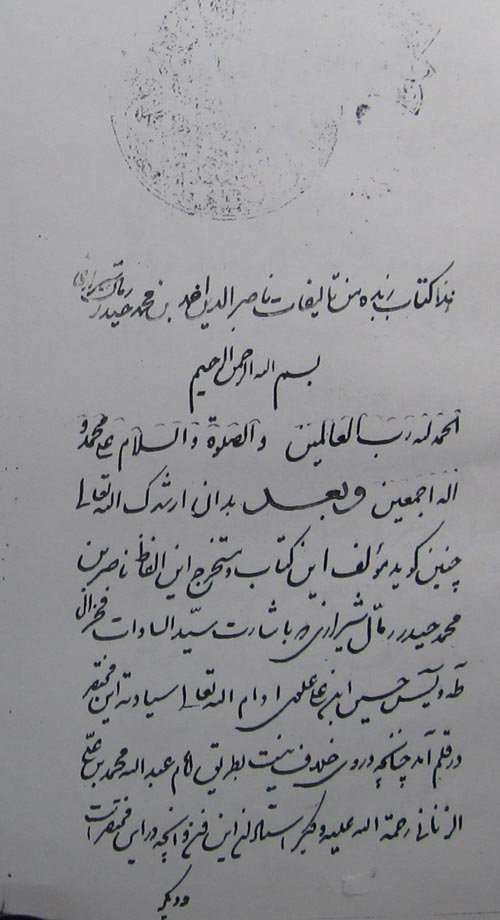 هذا کتاب زبده من تالیفات ناصر الدین احمد بن محمد حیدر رمال شیرازی
بسم الله الرحمن الرحیم
الحمد لله رب العالمین و الصلوة و السلام علی محمد و
اله اجمعین و بعد بدان ارشدک الله تعالی
چنین کوید مؤلف این کتاب و مستخرج این الفاظ ناصر بن
محمد حیدر رمال شیرازی باشارت سید السادات فخر ال
طه و یس حسین ادام الله تعالی سیادته این مختصر
در قلم آمد چنانچه در وی خلاف نیست بطریق امام عبد الله محمد بن
الزناتی رحمة الله علیه و دیکر استادان این فن و آنچه در این مختصر است